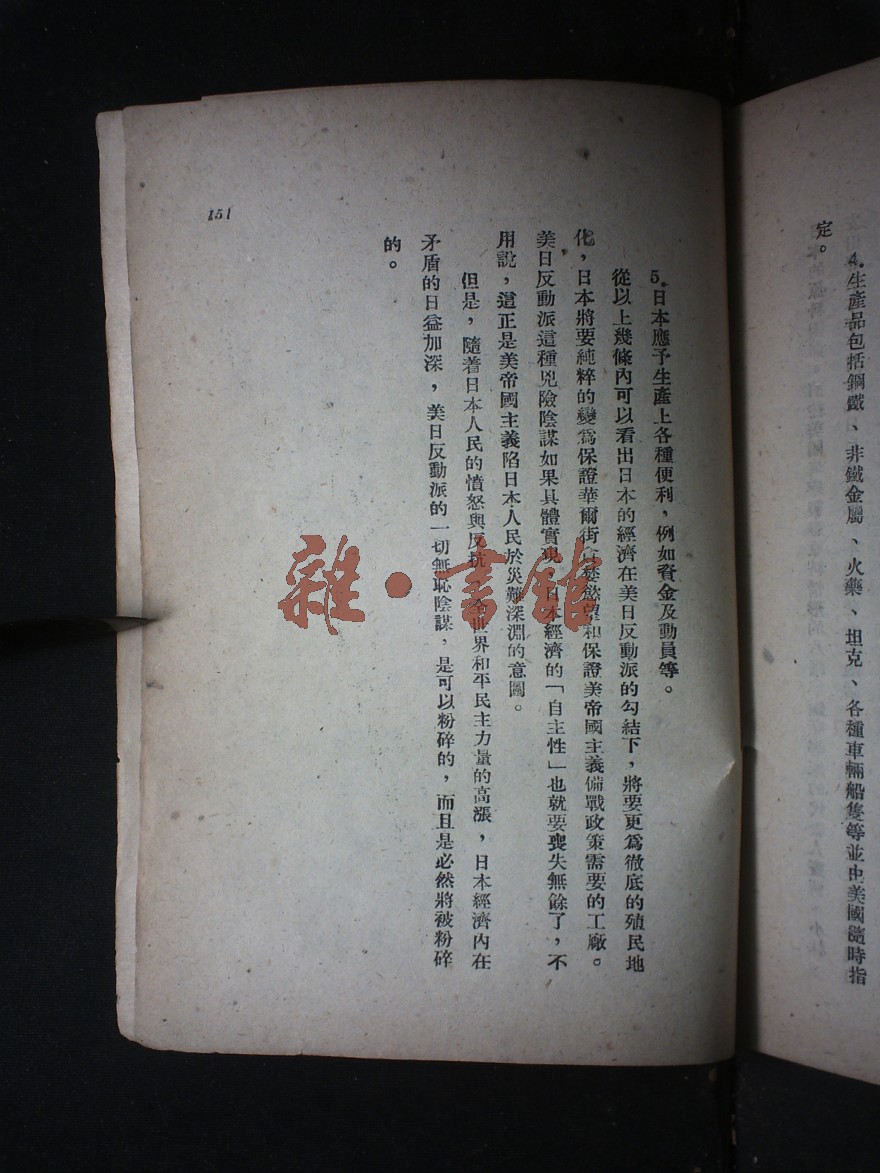 4.生產品包括鋼鐵、非鐵金屬、火藥、坦克、各種車輛船隻等並由美國隨時指
定。
5.日本應予生產上各種便利，例如資金及動員等。
從以上幾條內可以看出日本的經濟在美日反動派的勾結下，將要更爲徹底的殖民地
化，日本將要純粹的變爲保證華爾街貪婪慾望和保證美帝國主義備戰政策需要的工廠。
美日反動派這種兇險陰謀如果具體實現，日本經濟的「自主性」也就要喪失無餘了，不
用說，這正是美帝國主義陷日本人民於災難深淵的意圖。
但是，隨着日本人民的憤怒與反抗，全世界和平民主力量的高漲，日本經濟內在
矛盾的日益加深，美日反動派的一切無恥陰謀，是可以粉碎的，而且是必然將被粉碎
的。
151
雜·書館